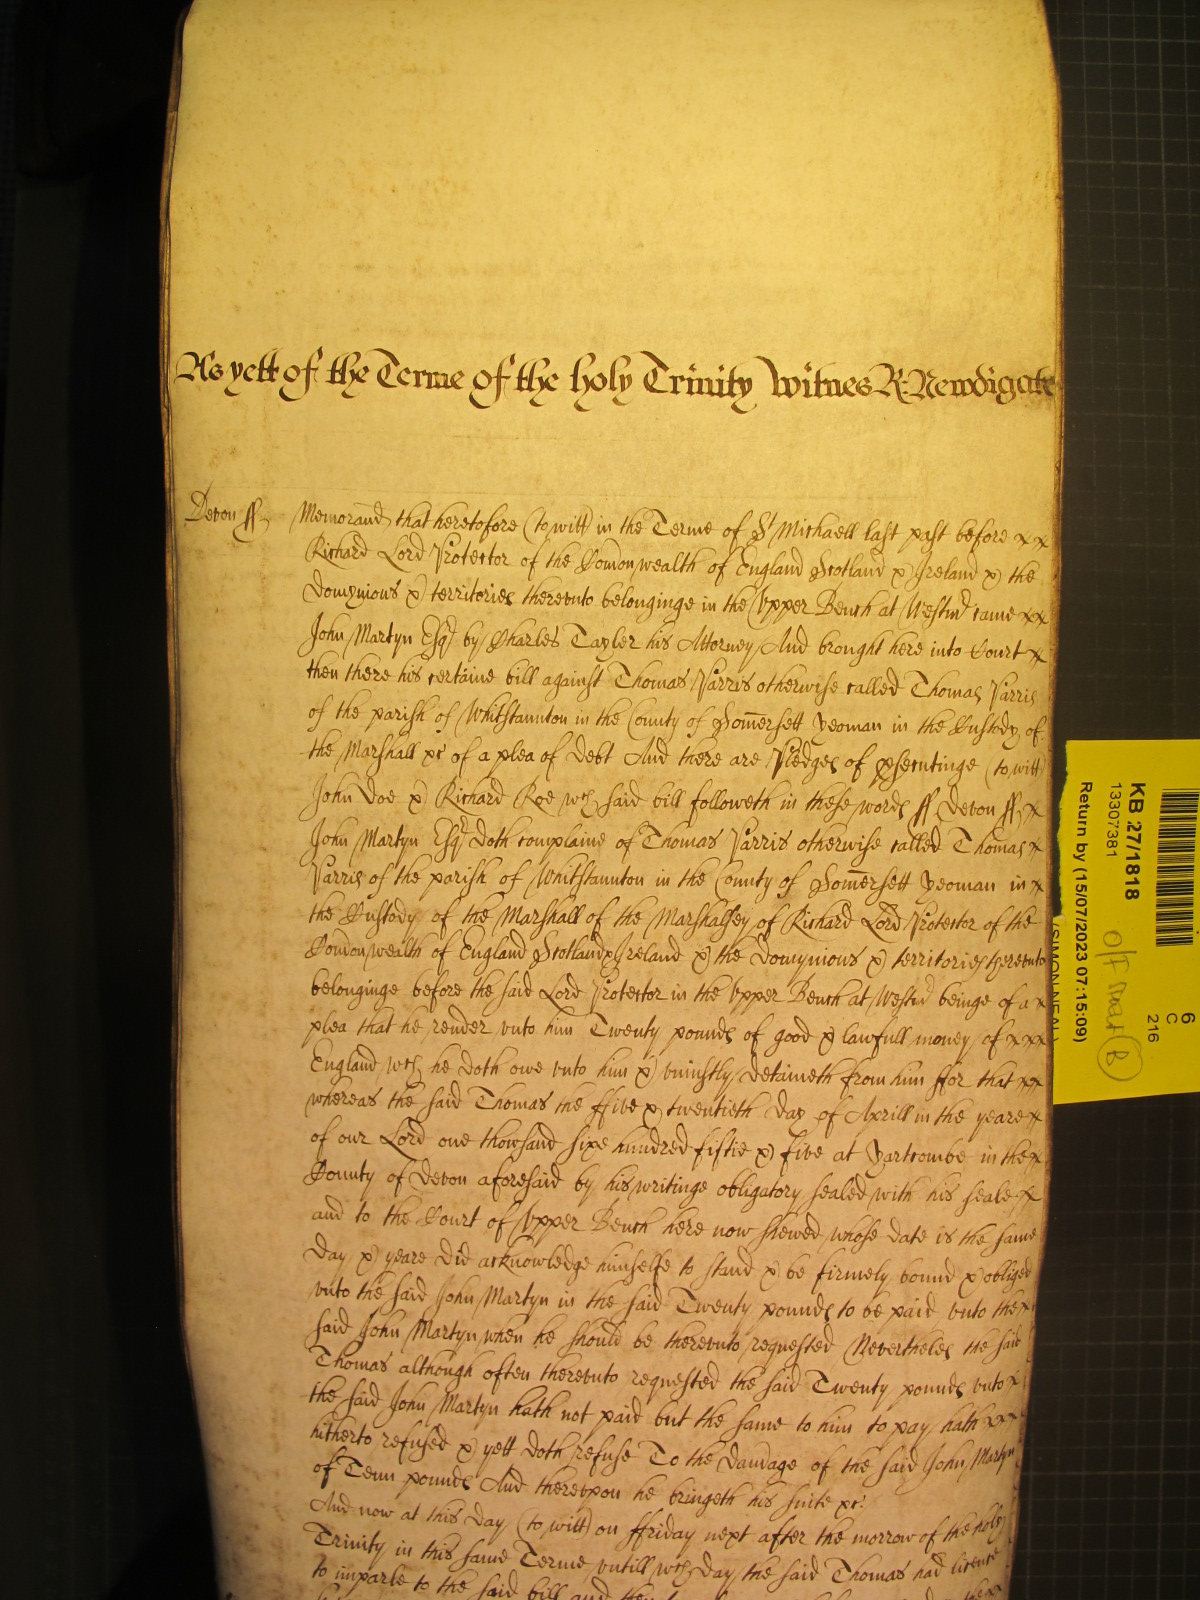 As yett of the Terme of the holy Trinity Witnes R: Newdigate
Devon ss Memorand that heretofore (to witt) in the Terme of St Michaell last past before xx
Richard Lord Protector of the Comonwealth of England Scotland & Ireland & the
Domynious & territories thereunto belonginge in the Upper Bench at Westmr came xx
John Martyn Esqr by Charles Tayler his Attorney And brought here into Court x
then there his certaine bill against Thomas Parris otherwise called Thomas Parris
of the parish of Whitstaunton in the County of Somersett yeoman in the Custody of
the Marshall &c of a plea of Debt And there are Pledges of psecutinge (to witt)
John Doe & Richard Roe wch said bill followeth in these words ss Devon ss x
John Martyn Esqr doth complaine of Thomas Parris otherwise called Thomas x
Parris of the parish of Whitstaunton in the County of Somersett yeoman in x
the Custody of the Marshall of the Marshalsey of Richard Lord Protector of the
Comonwealth of England Scotland & Ireland & the Domynious & territories thereunto
belonginge before the said Lord Protector in the Upper Bench at Westmr beinge of a x
plea that he render unto him Twenty pounds of good & lawfull money of xxx
England wch he doth owe unto him & uniustly detaineth from him ffor that xx
whereas the said Thomas the ffive & twentieth day of Aprill in the yeare x
of our Lord one thowsand sixe hundred fiftie & five at Yartcombe in the x
County of Devon aforesaid by his writinge obligatory sealed with his seale x
and to the Court of Upper Bench here now shewed whose date is the same
day & yeare did acknowledge himselfe to stand & be firmely bound & obliged
unto the said John Martyn in the said Twenty pounds to be paid unto the x
said John Martyn when he should be thereunto requested Neverthelesse the said
Thomas although often thereunto requested the said Twenty pounds unto x
the said John Martyn hath not paid but the same to him to pay hath xxx
hitherto refused & yett doth refuse To the damage of the said John Martyn
of Tenn pounds And thereupon he bringeth his suite &c:
And now at this day (to witt) on ffriday next after the morrow of the holy
Trinity in this same Terme untill wch day the said Thomas had licence
to imparle to the said bill and then
KB 27/1818
13307381
Return by (15/07/2023 07:15:09)
(SIMON NEAL)
6
C
216
O/F Mar B